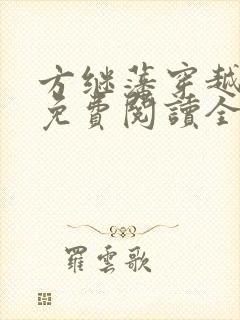 方继藩穿越
免費閱讀全
羅雲歌